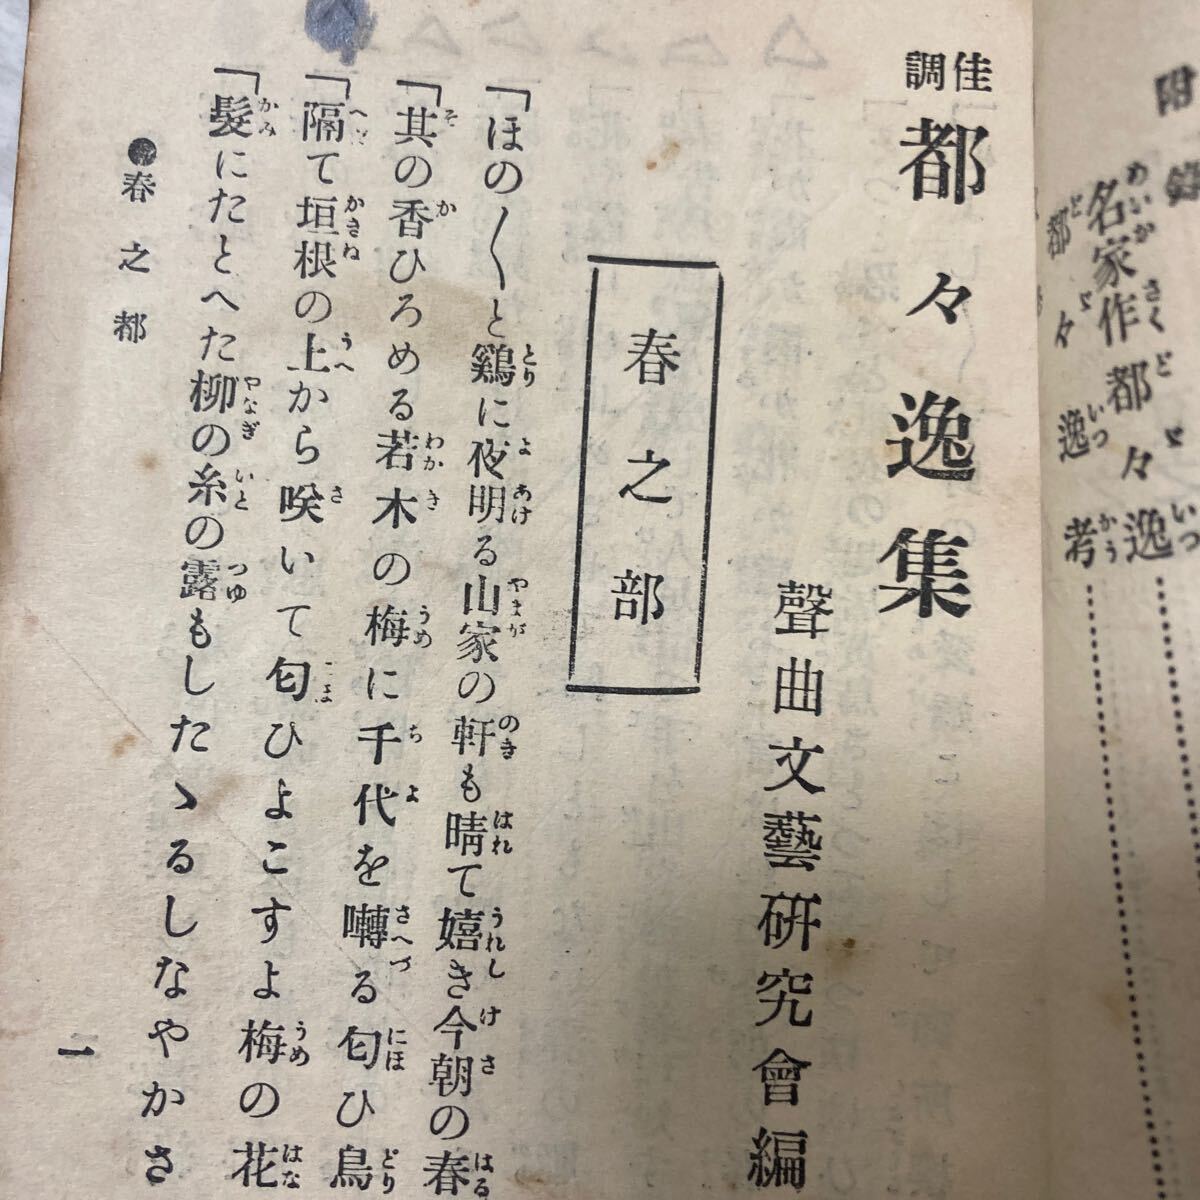 附錄
名家作都々逸
都々逸考
佳調 都々逸集
聲曲文藝研究會編
春之部
「ほの〱と鷄に夜明る山家の軒も晴て嬉き今朝の春
「其の香ひろめる若木の梅に千代を囀る匂ひ鳥
「隔て垣根の上から咲いて匂ひよこすよ梅の花
「髮にたとへた柳の糸の露もしたゝるしなやかさ
●春之部
一